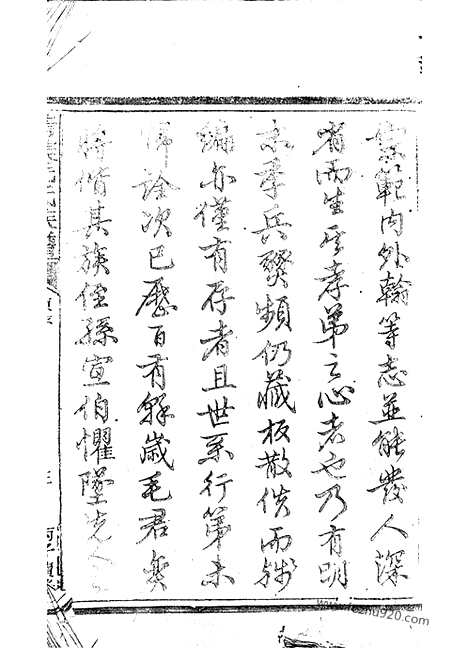 範內外翰等志並能發人深
省而生其孝弟之心者也乃有明
末季兵燹頻仍藏板散佚而殘
編亦僅有存者且世系行第未
詮次已歷百有餘歲毛君奕
時偕其族侄孫宣伯懼墜先人
www.fozhu920.com